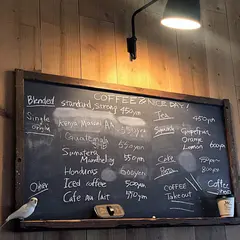 COFFEE & NICE DAY!
Blended standard, strong 450yen
Single origin
Kenya Masai AA 550yen
Guatemala 550yen
Sumatera Mandheling 550yen
Honduras 600yen
Other
Iced coffee 500yen
Cafe au lait 550yen
Tea 450yen
Squash Grapefruit
Orange
Lemon 600yen
Cake 450yen
COFFEE
Takeout
Coffee